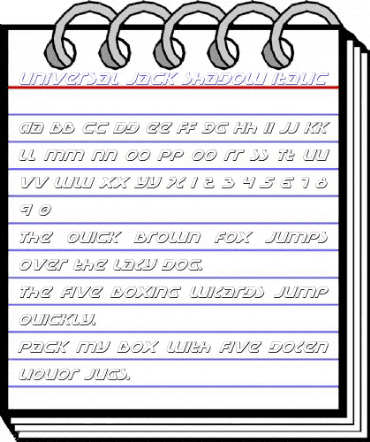 Universal Jack Shadow Italic
Aa Bb Cc Dd Ee Ff Gg Hh Ii Jj Kk
Ll Mm Nn Oo Pp Qq Rr Ss Tt Uu
Vv Ww Xx Yy Zz 1 2 3 4 5 6 7 8
9 0
The quick brown fox jumps
over the lazy dog.
The five boxing wizards jump
quickly.
Pack my box with five dozen
liquor jugs.